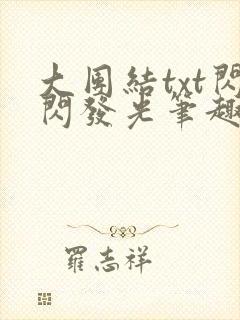 大團結txt閃
閃發光筆趣
羅志祥